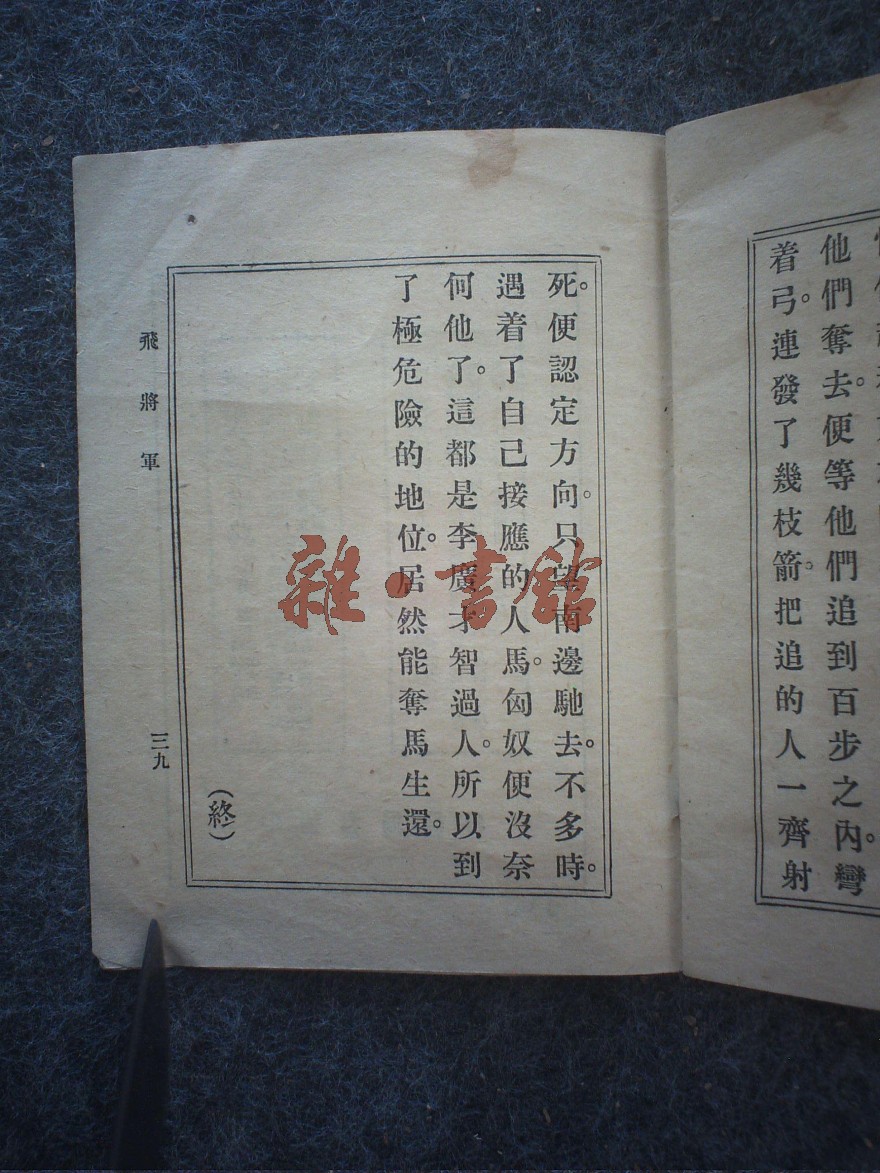 他們奪去。便等他們追到百步之內。彎
着弓。連發了幾枝箭。把追的人一齊射
死。便認定方向。只望南邊馳去。不多時。
遇着了自己接應的人馬。匈奴便沒奈
何他了。這都是李廣才智過人。所以到
了極危險的地位。居然能奪馬生還。
(終)
飛將軍
三九
雜·書館